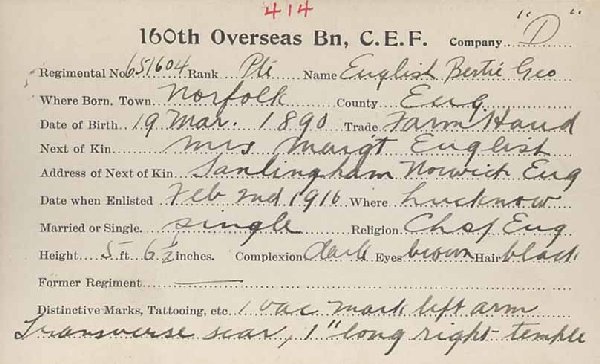 414
160th Overseas Bn, C.E.F. Company "D"
Regimental No. 651604 Rank Pte Name English Bertie Geo
Where Born, Town Norfolk County Eng
Date of Birth 19 Mar. 1890 Trade Farm Hand
Next of Kin Mrs Margt English
Address of Next of Kin Sanlingham Norwich Eng
Date when Enlisted Feb 2nd 1916 Where Lucknow
Married or Single. single Religion Ch of Eng
Height 5 ft. 6½ inches. Complexion dark Eyes brown Hair black
Former Regiment —
Distinctive Marks, Tattooing, etc. 1 vac mark left arm
Transverse scar, 1" long right temple